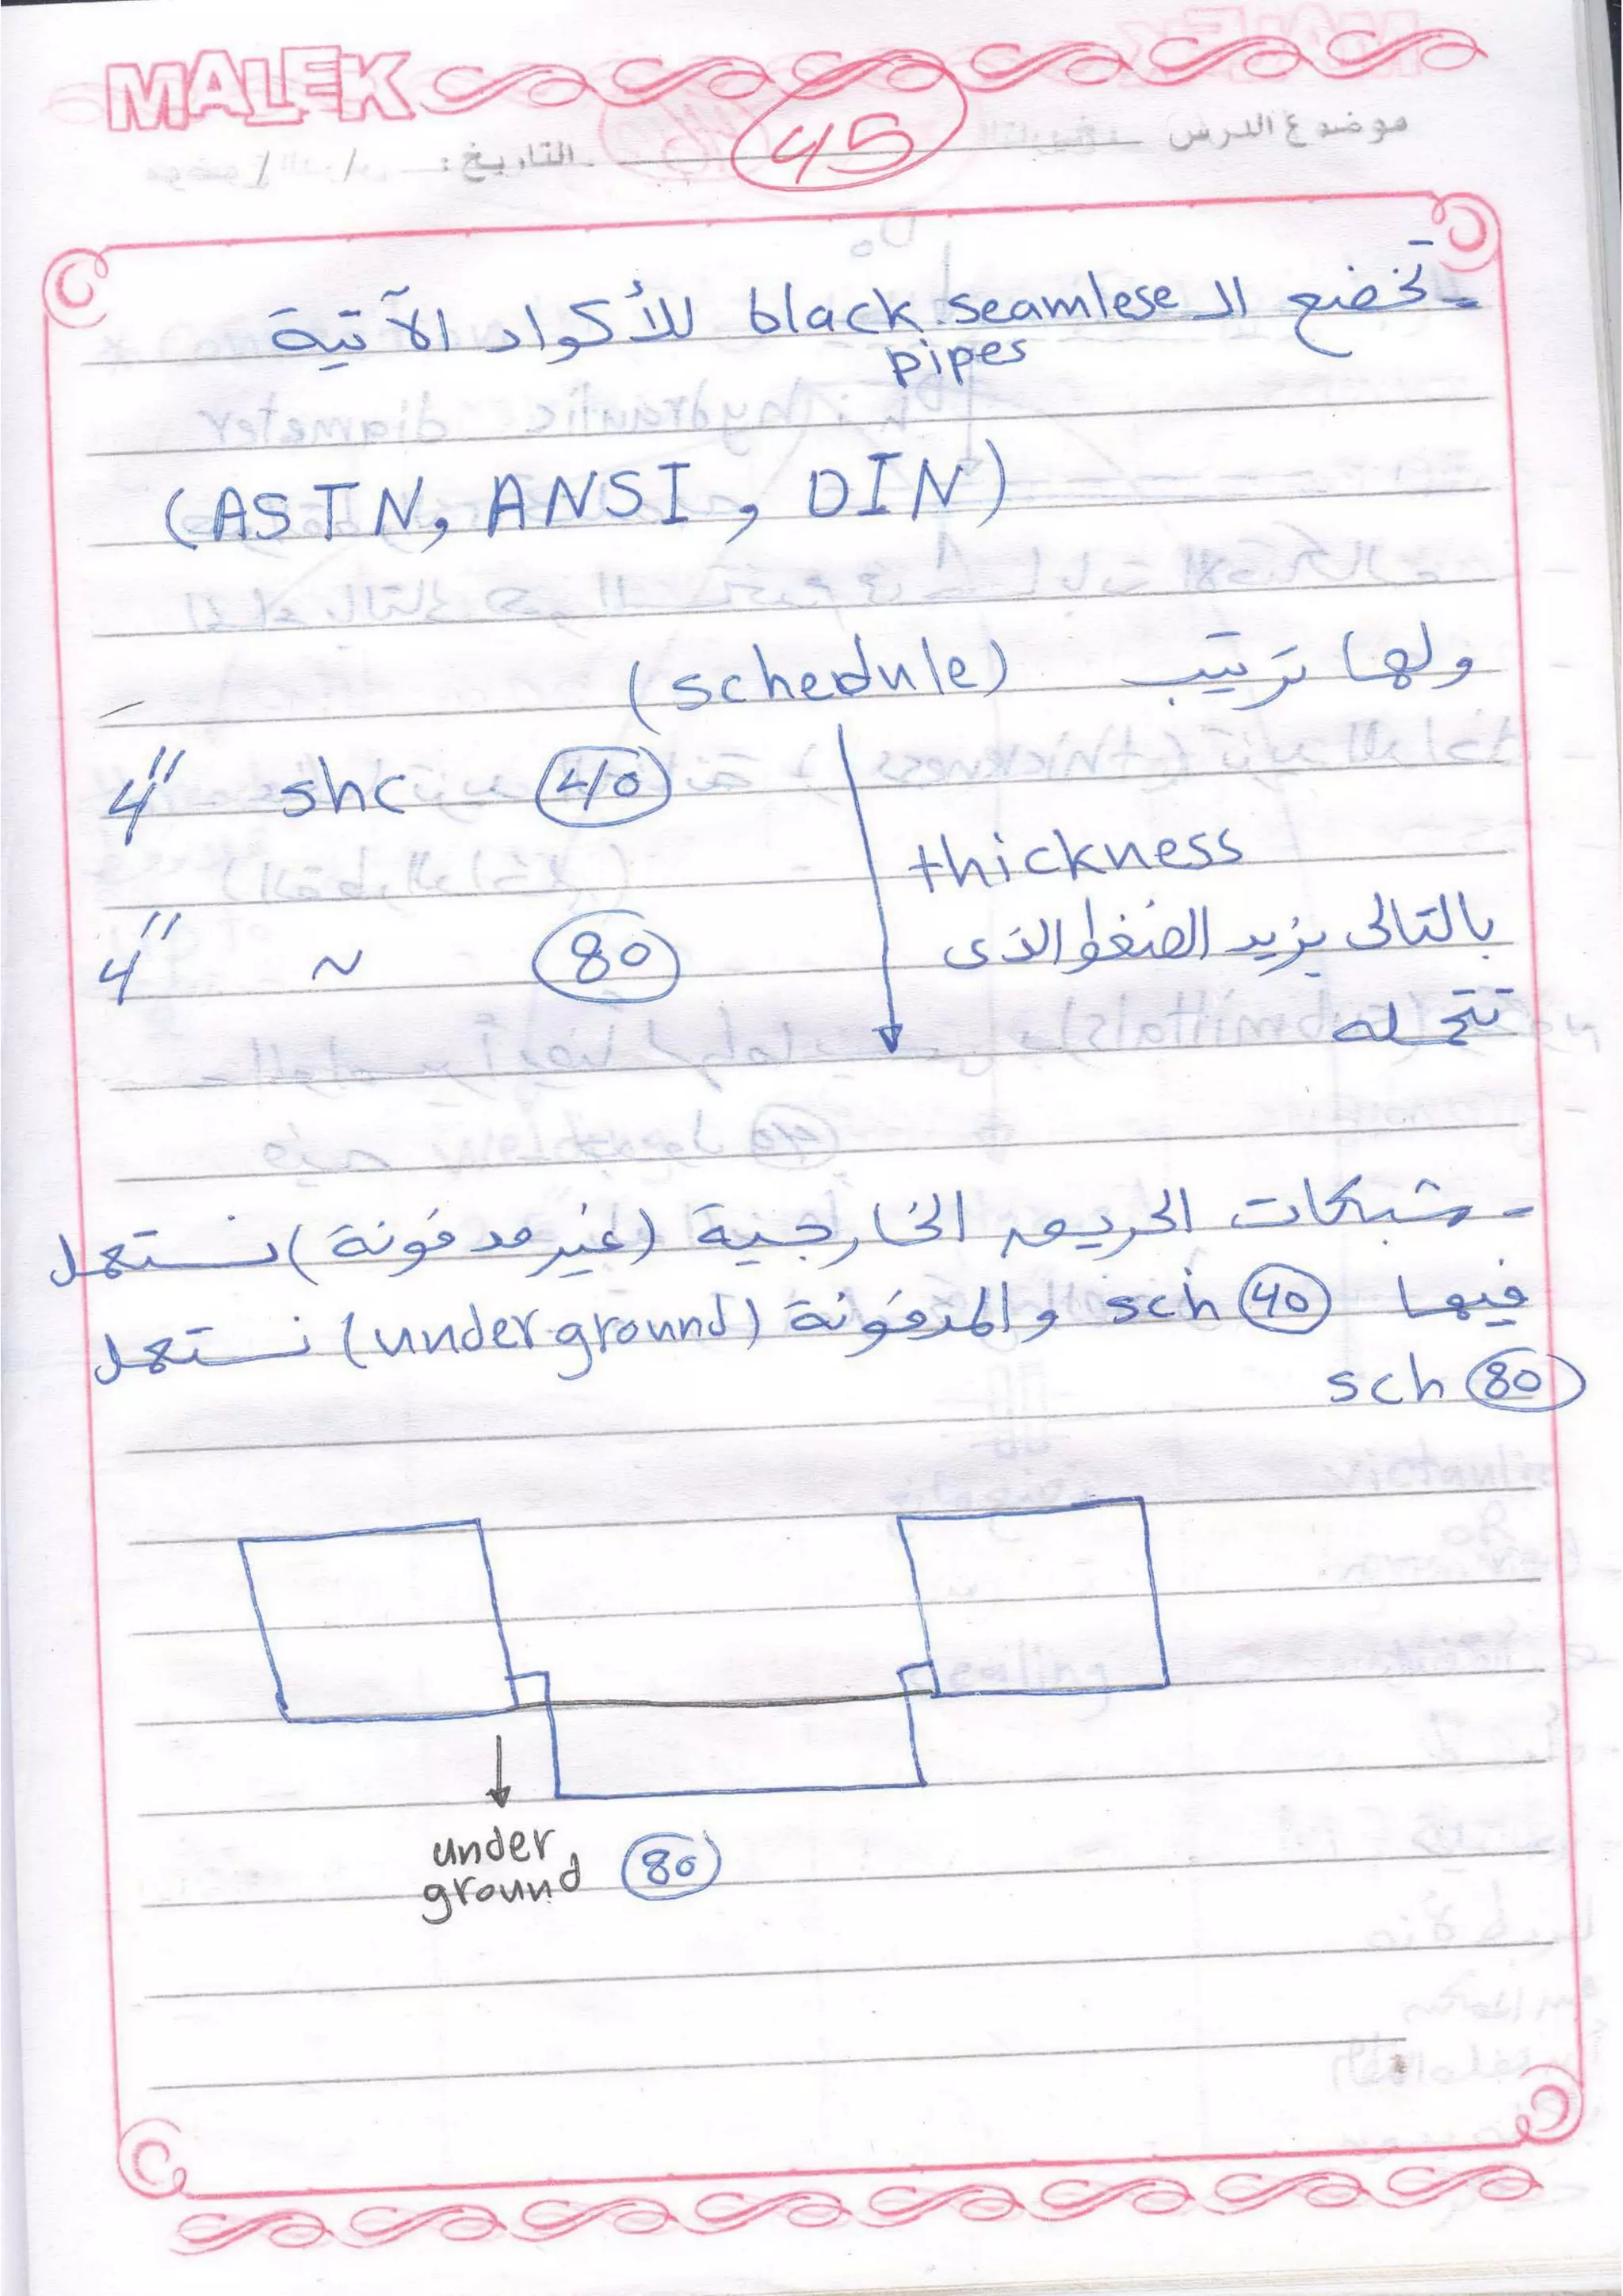 MALEK
موضوع الدرس
45
التاريخ: / /
- تخضع الـ black seamlese pipes للأكواد الآتية
(ASTN, ANSI, DIN)
ولها ترتيب (schedule)
4" shc 40
thickness
بالتالى يزيد الضغط الذى
4" ~ 80
تتحمله
- شبكات الحريق الخارجية (غير مدفونة) نستعمل
فيها sch 40 والمدفونة (underground) نستعمل
sch 80
under
ground 80